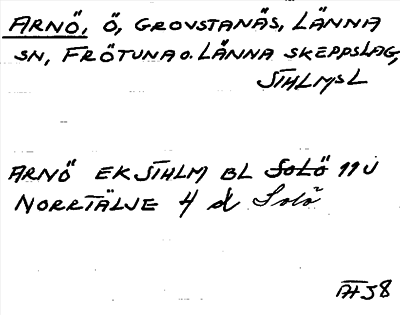 ARNÖ, Ö, GROVSTANÄS, LÄNNA
SN, FRÖTUNA O. LÄNNA SKEPPSLAG,
STHLMSL
ARNÖ EK STHLM BL SOLÖ 11J
NORRTÄLJE 4 d Solö
ÅH58